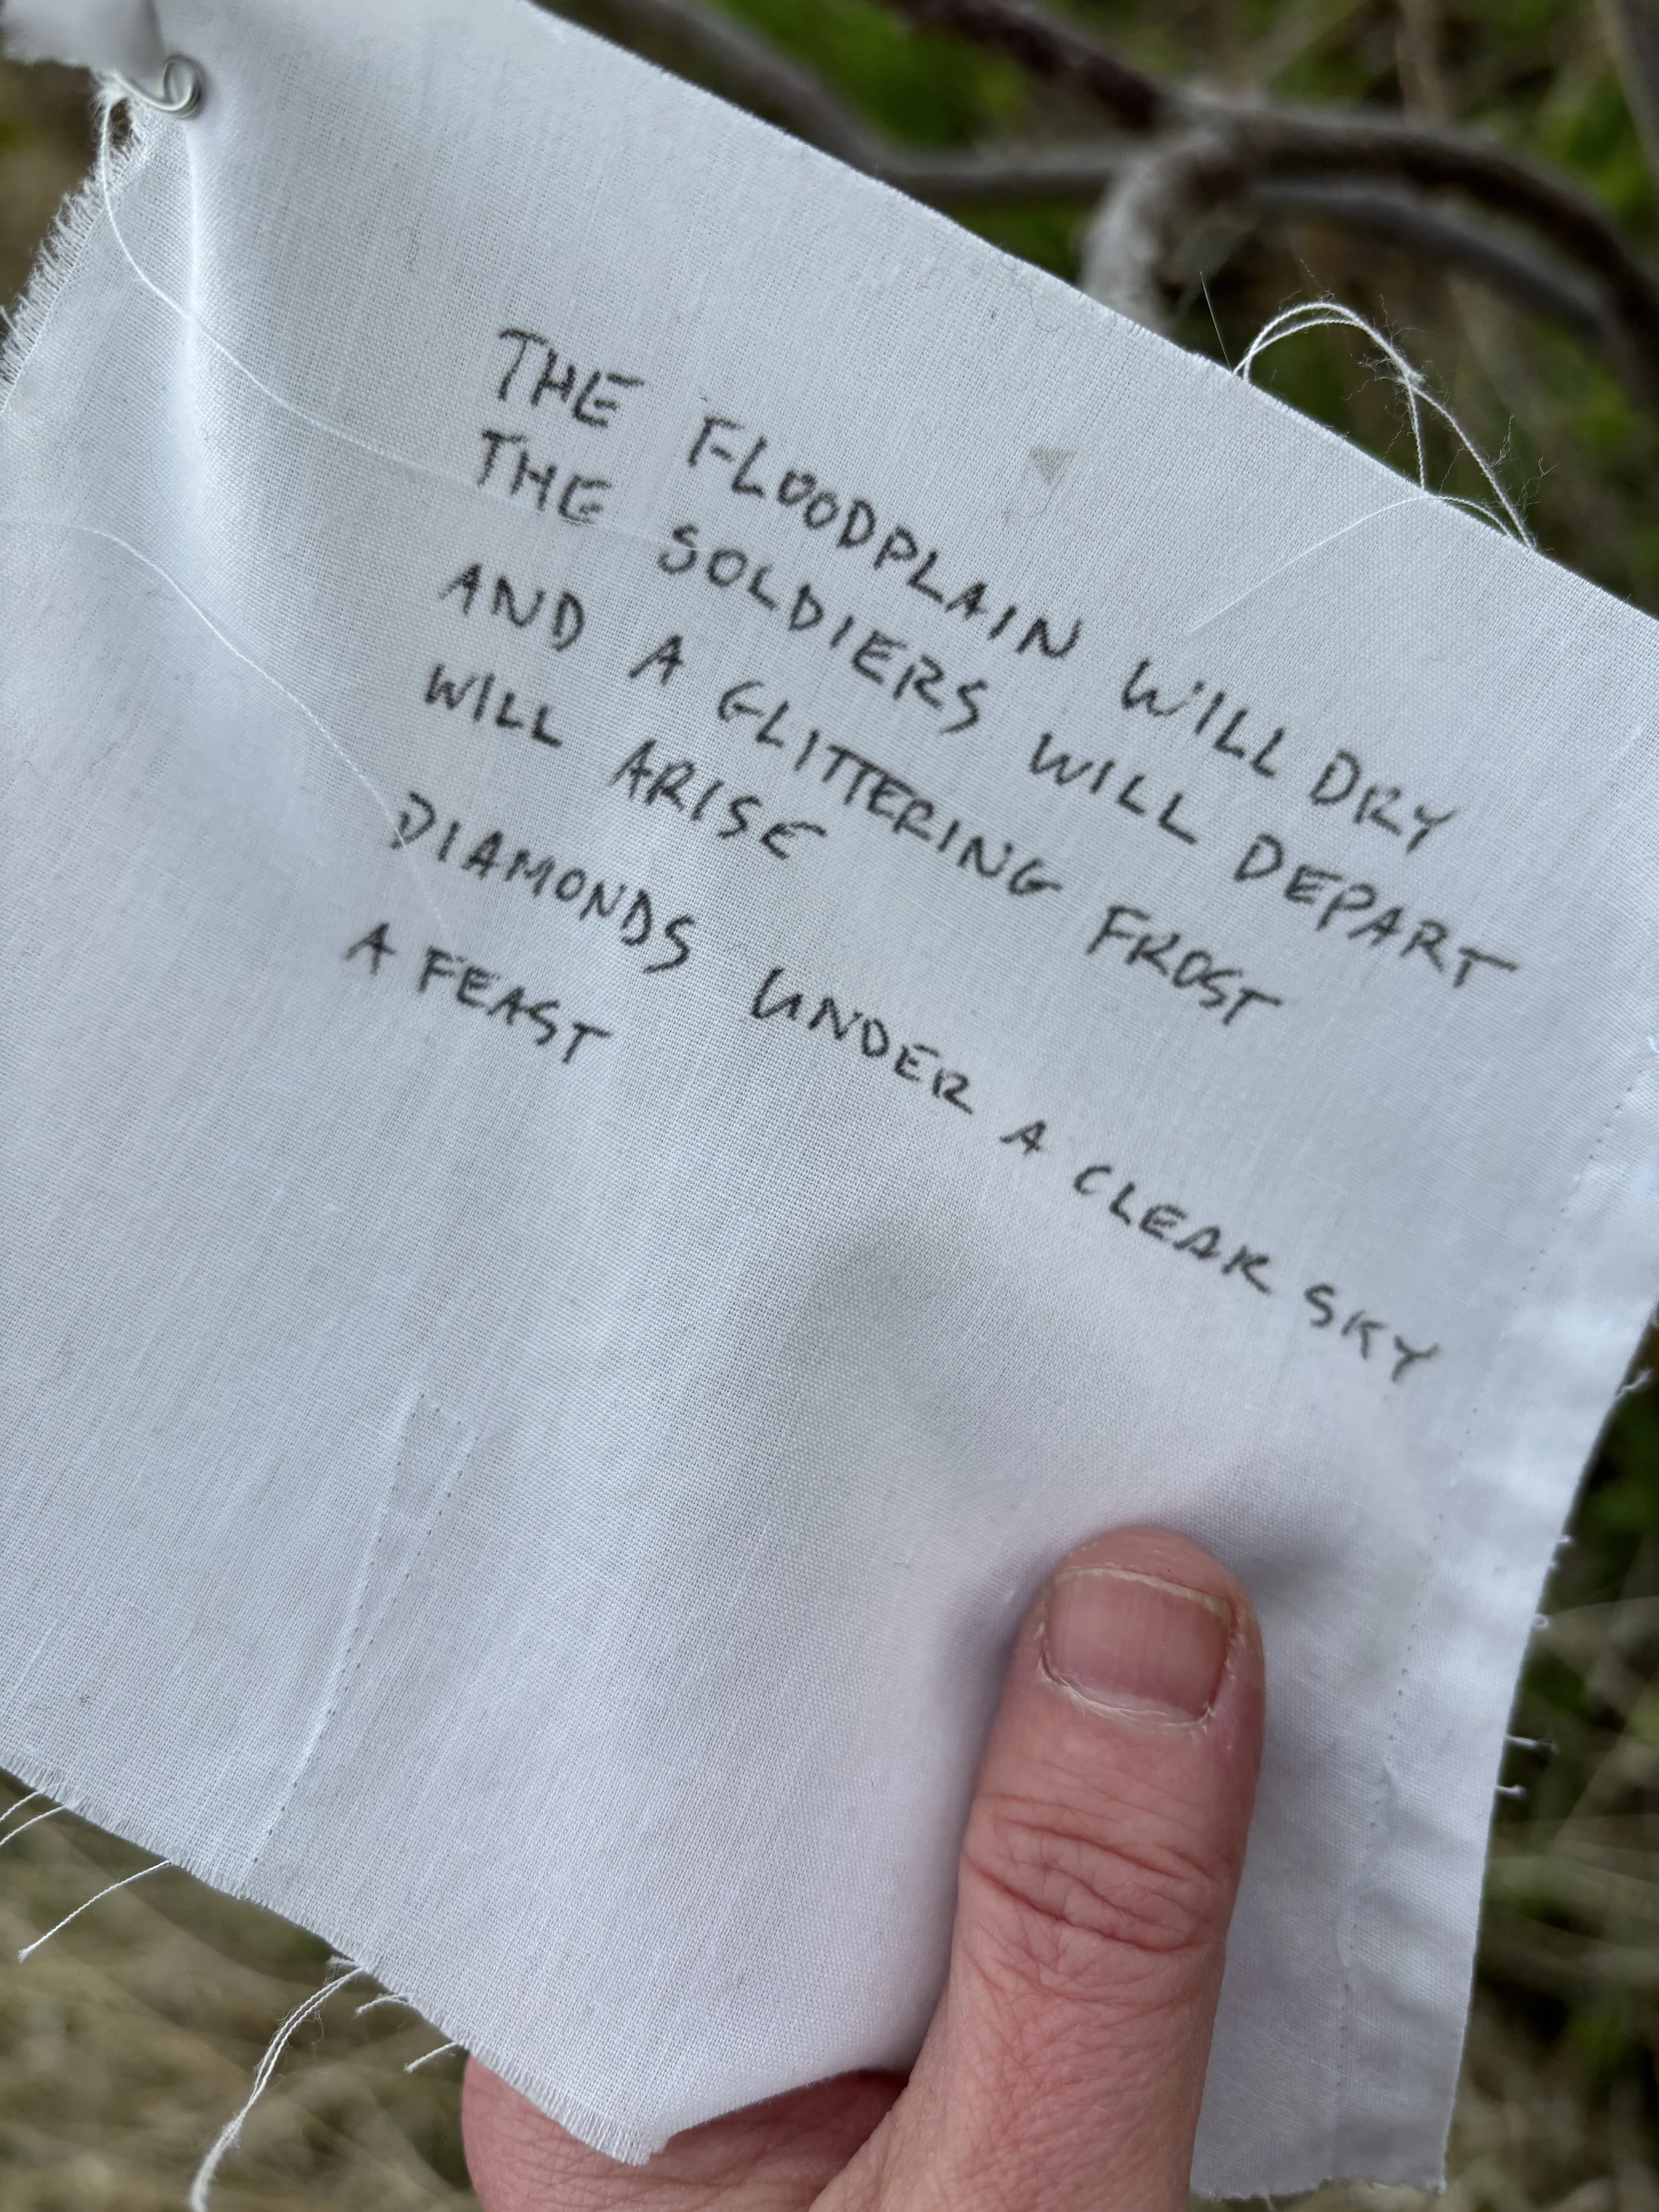 THE FLOODPLAIN WILL DRY
THE SOLDIERS WILL DEPART
AND A GLITTERING FROST
WILL ARISE
DIAMONDS UNDER A CLEAR SKY
A FEAST